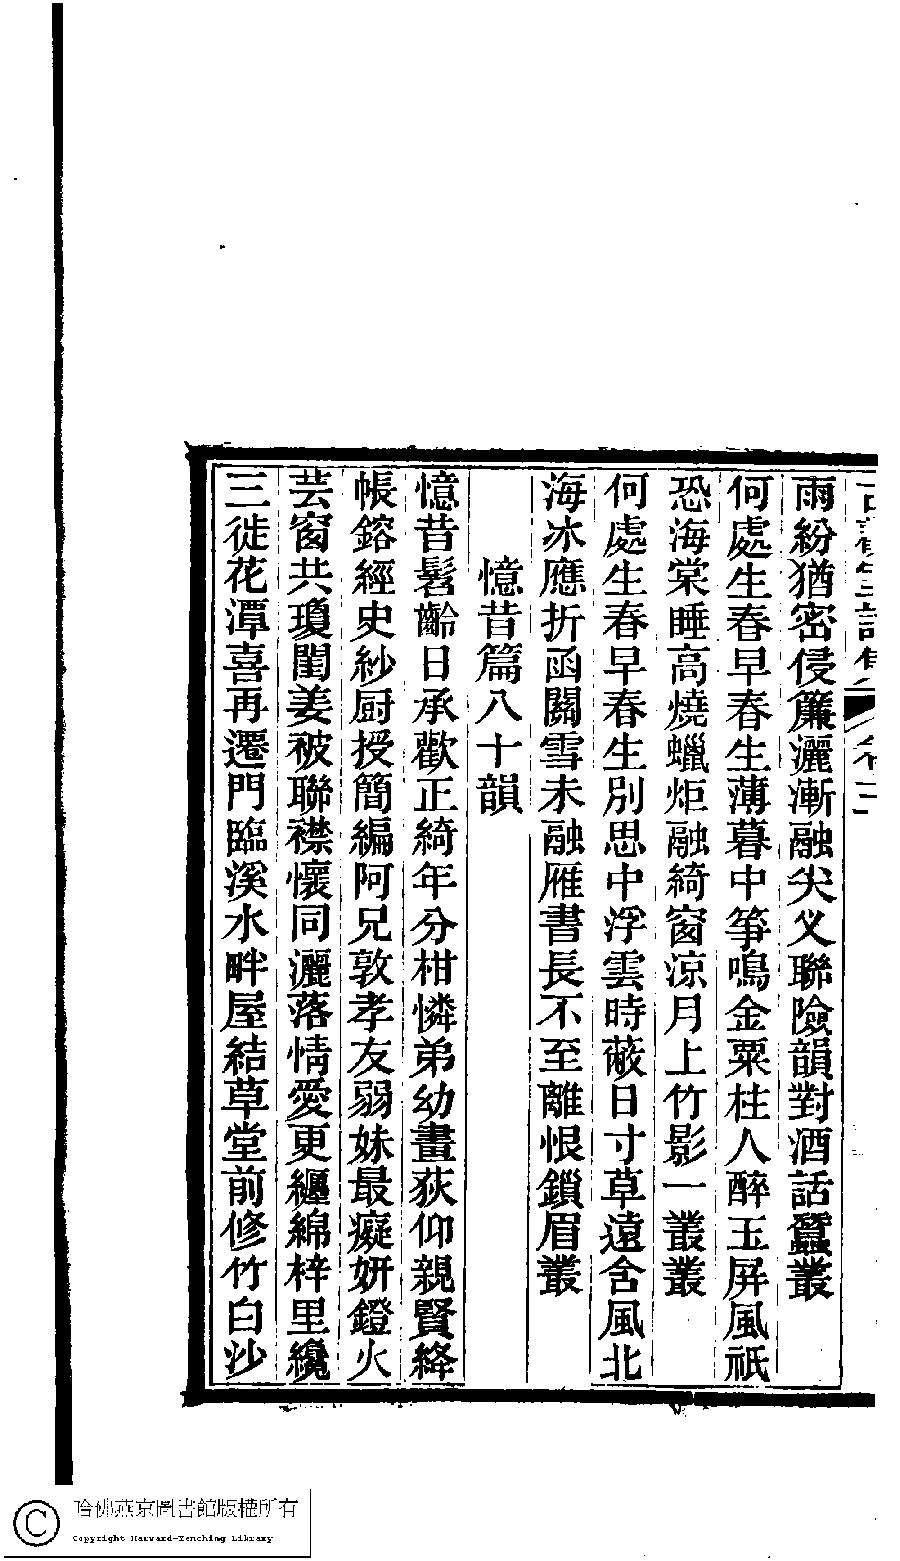 雨紛猶密侵簾灑漸融尖义聯險韻對酒話蠶叢
何處生春早春生薄暮中箏鳴金粟柱人醉玉屏風祇
恐海棠睡高燒蠟炬融綺窗涼月上竹影一叢叢
何處生春早春生別思中浮雲時蔽日寸草遠含風北
海冰應折函關雪未融雁書長不至離恨鎖眉叢
憶昔篇八十韻
憶昔髫齡日承歡正綺年分柑憐弟幼畫荻仰親賢絳
帳鎔經史紗厨授簡編阿兄敦孝友弱妹最癡妍鐙火
芸窗共瓊閨姜被聯襟懷同灑落情愛更纏綿梓里纔
三徙花潭喜再遷門臨溪水畔屋結草堂前修竹白沙
哈佛燕京圖書館版權所有
Copyright Harvard-Yenching Library